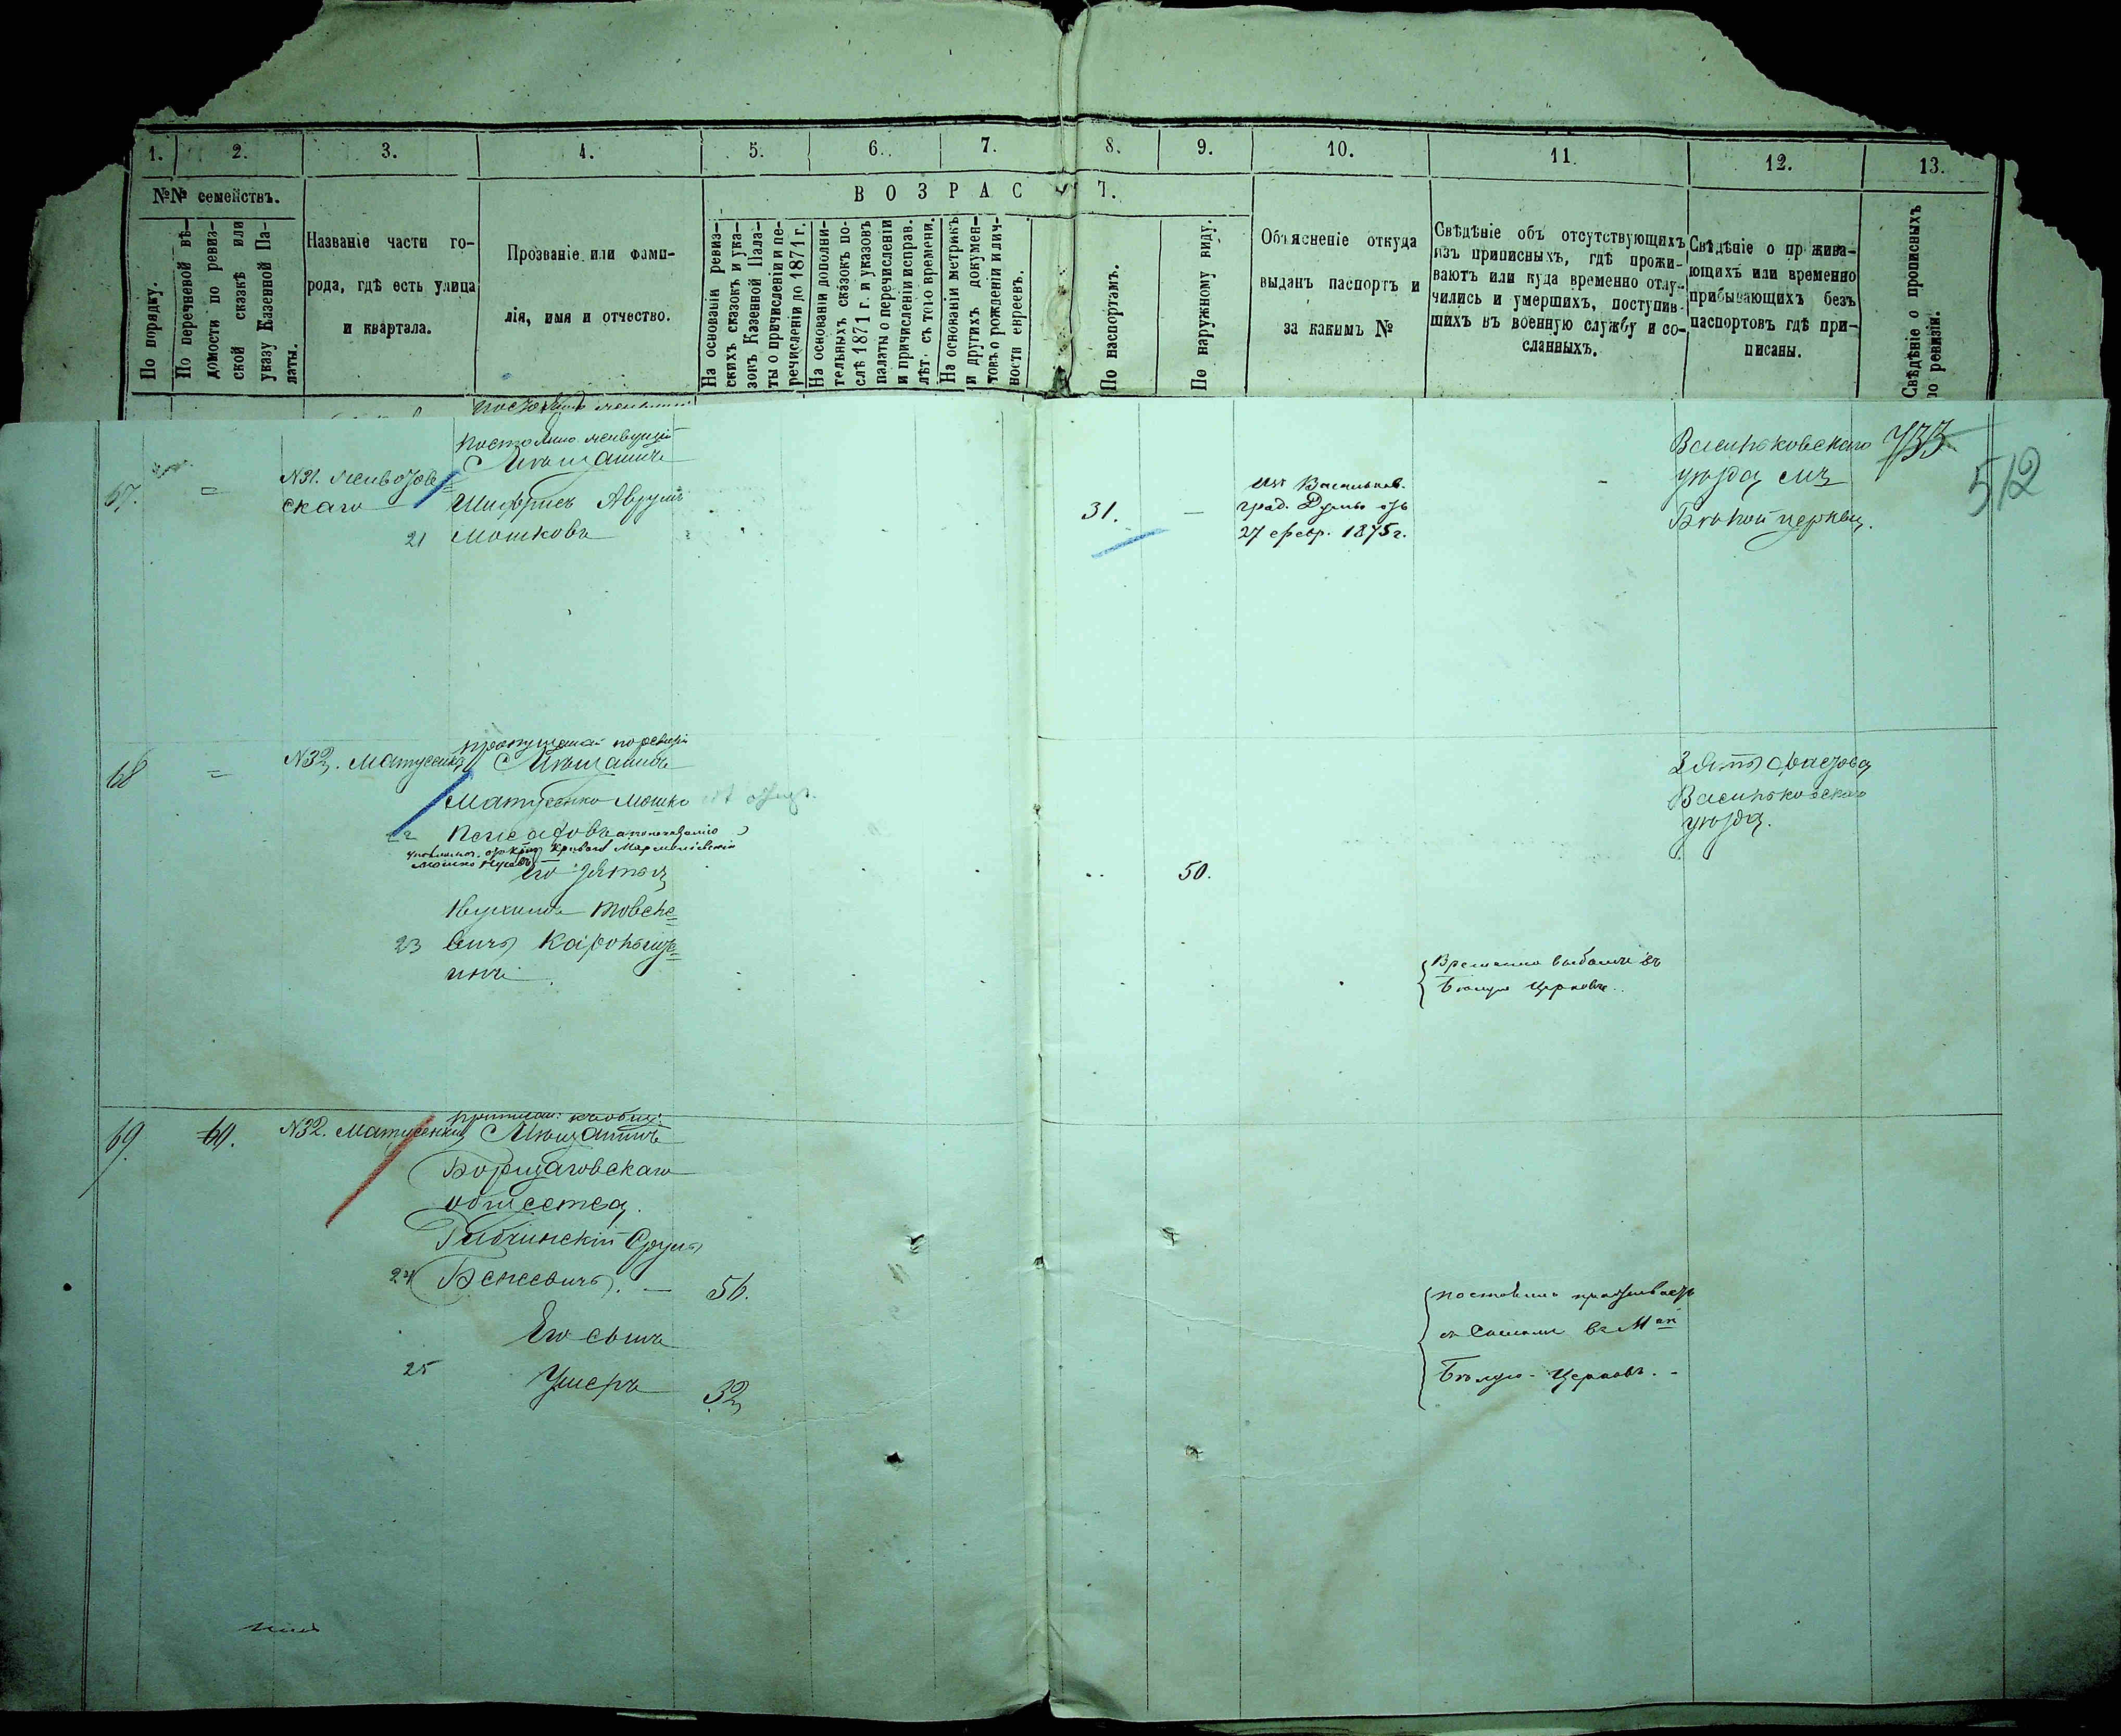 1. 2. 3. 4. 5. 6. 7. 8. 9. 10. 11. 12. 13.
№№ семействъ.
По порядку.
По перечневой вѣ-
домости по ревиз-
ской сказкѣ или
указу Казенной Па-
латы.
Названіе части го-
рода, гдѣ есть улица
и квартала.
Прозваніе или фами-
лія, имя и отчество.
ВОЗРАСТ.
На основаніи ревиз-
скихъ сказокъ и ука-
зовъ Казенной Пала-
ты о причисленіи и пе-
речисленіи до 1871 г.
На основаніи дополни-
тельныхъ сказокъ по-
слѣ 1871 г. и указовъ
палаты о перечисленіи
и причисленіи исправ.
лѣт. съ того времени.
На основаніи метрикъ
и другихъ докумен-
товъ о рожденіи и лич-
ности евреевъ.
По паспортамъ.
По наружному виду.
Объясненіе откуда
выданъ паспортъ и
за какимъ №
Свѣдѣніе объ отсутствующихъ
изъ приписныхъ, гдѣ прожи-
ваютъ или куда временно отлу-
чились и умершихъ, поступив-
шихъ въ военную службу и со-
сланныхъ.
Свѣдѣніе о прожива-
ющихъ или временно
прибывающихъ безъ
паспортовъ гдѣ при-
писаны.
Свѣдѣніе о прописныхъ
по ревизіи.
67.
=
№31.
скаго
Мѣщанинъ
Аврумъ
21 Мошковъ
31.
—
Изъ Васильков.
град. Думы отъ
27 февр. 1875 г.
-
Васильковскаго
уѣзда мѣ
Бѣлой церкви.
733
512
68
=
№32. Матусенка
пропущенный по ревизіи
Мѣщанинъ
Матусенко Мошко
22
Мошко
Его зять
23 вичъ
50.
Временно выбылъ въ
Бѣлую Церковь.
Зять Фастова
Васильковскаго
уѣзда.
69.
60.
№32. Матусенка
Мѣщанинъ
Борщаговскаго
общества
Рабчинскій Сруль
24 Беньевичъ. — 56.
Его сынъ
25 Ушеръ 32
постоянно проживаетъ
съ сыномъ въ М
Бѣлую-Церковь. -